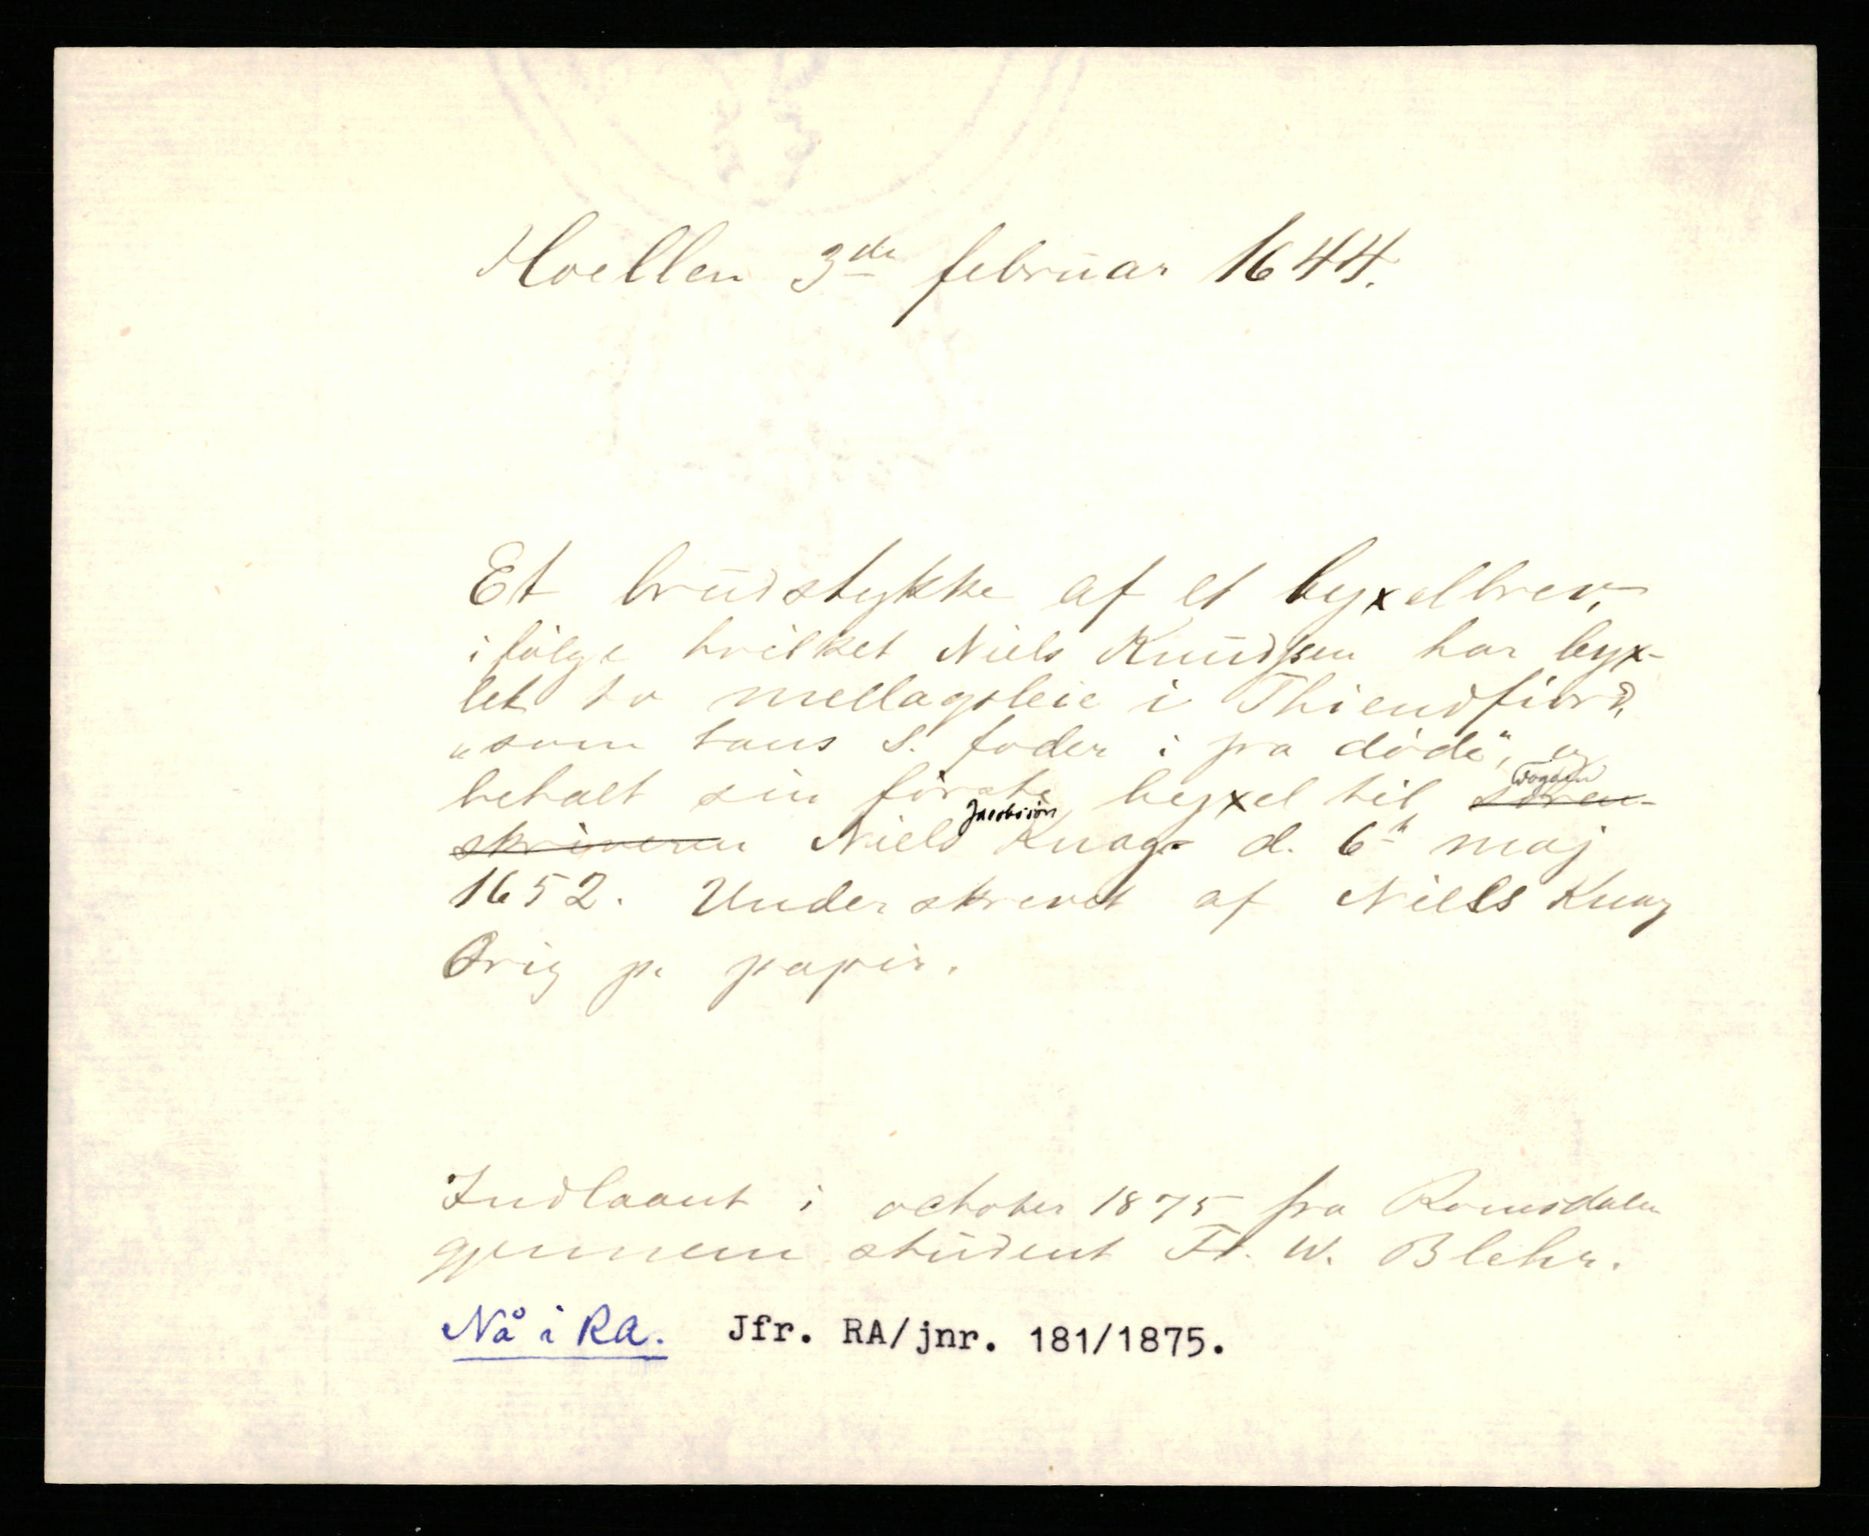 Hoellen 3de februar 1644.
Et brudstykke af et byxelbrev,
ifølge hvilket Niels Knudsen har byx-
let to mellagsleie i Thiendfiord,
"som hans S. fader i fra døde", og
betalt sin første byxel til Foggen soren-
skriveren Niels Jacobsøn Knag d. 6te maj
1652. Underskrevet af Niells Knag
Orig p. papir.
Indlaant i october 1875 fra Romsdalen
gjennem student Fr. W. Blehr.
Nå i RA. Jfr. RA/jnr. 181/1875.